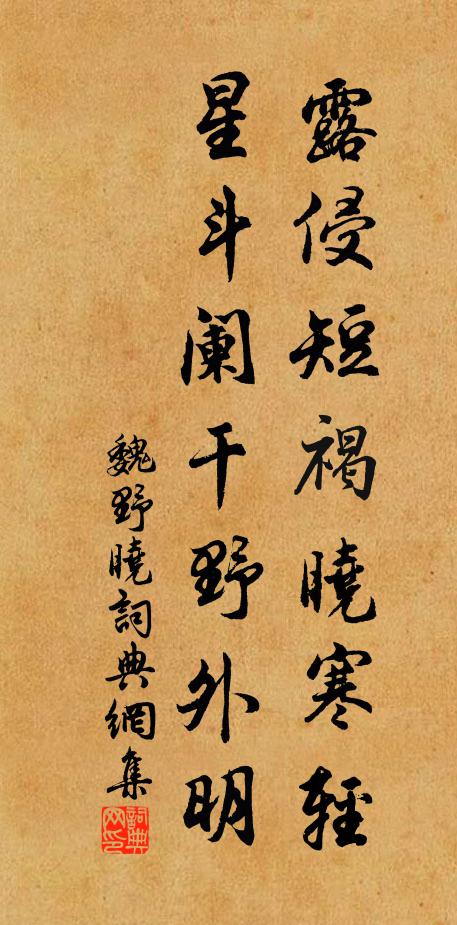 露侵短褐曉寒輕
星斗闌干野外明
魏野曉詞典網集
詞典网印